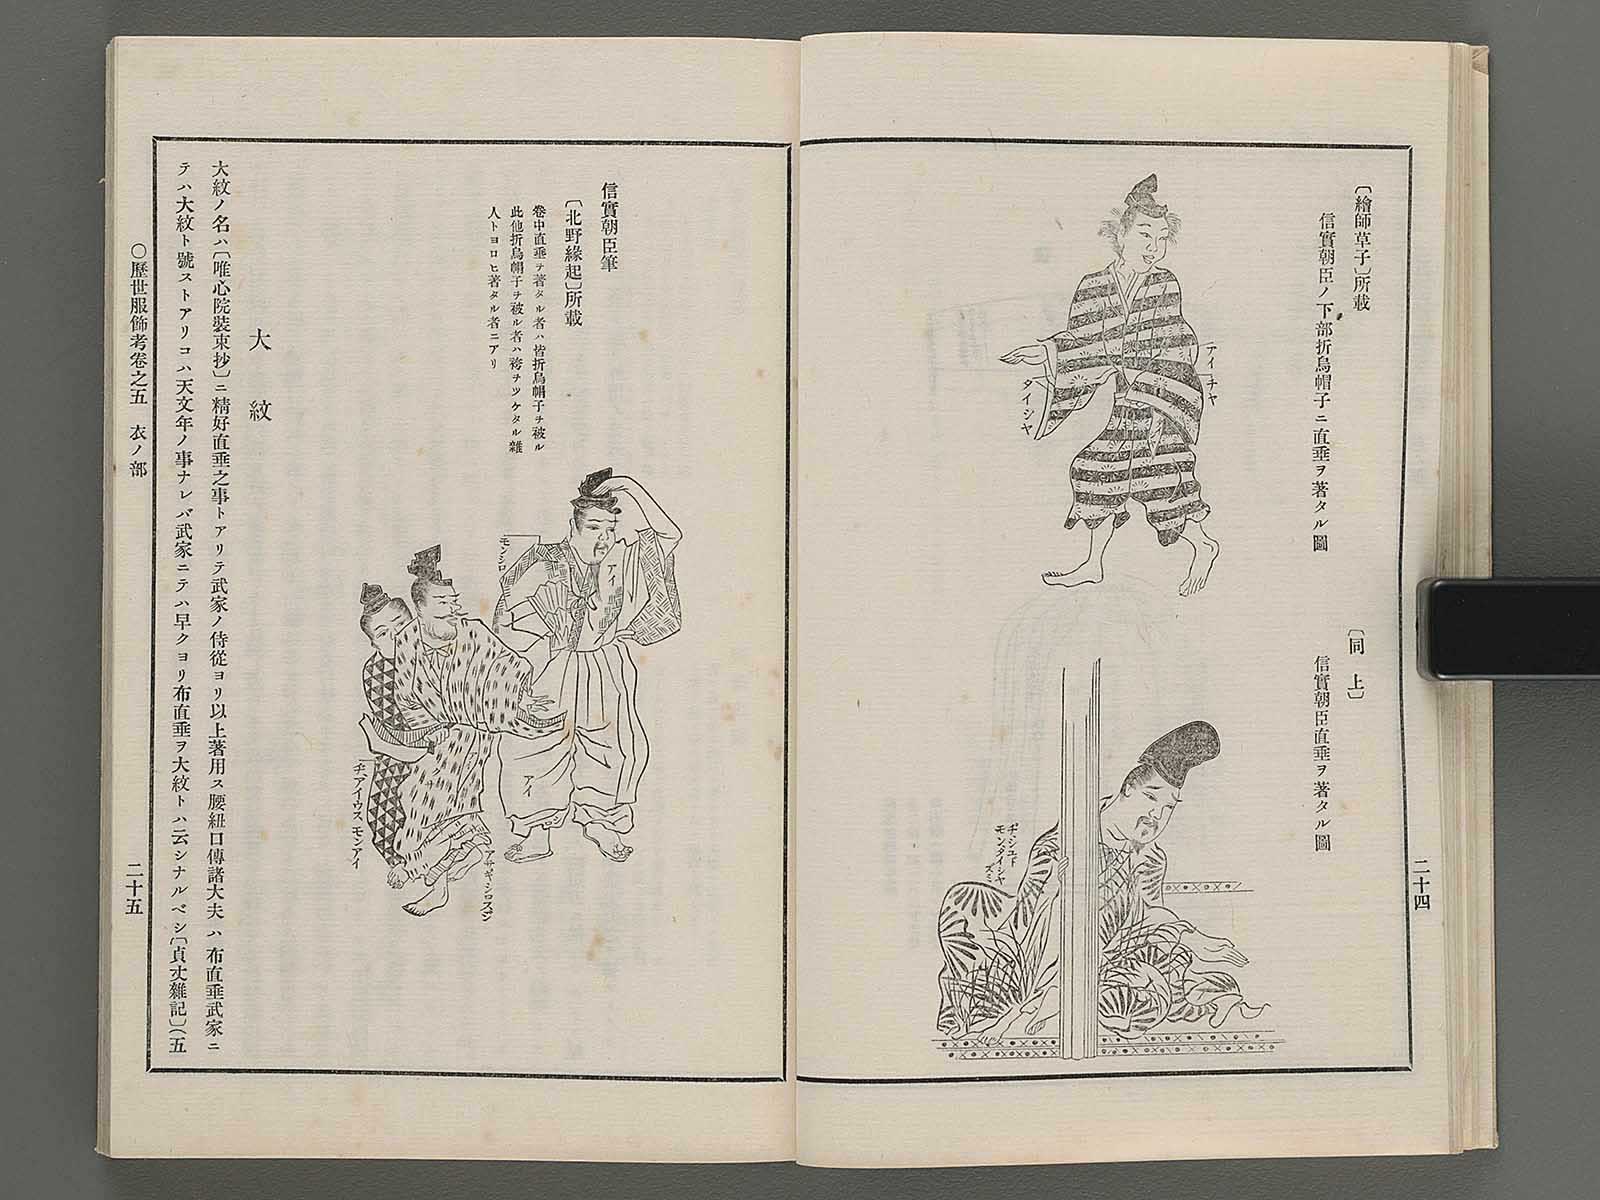 〔繪師草子〕所載
信實朝臣ノ下部折烏帽子ニ直垂ヲ著タル圖
アイ
チヤ
タイシヤ
〔同上〕
信實朝臣直垂ヲ著タル圖
モンタイシヤ
二十四
信實朝臣筆
〔北野緣起〕所載
卷中直垂ヲ著タル者ハ皆折烏帽子ヲ被ル
此他折烏帽子ヲ被ル者ハ袴ヲツケタル雜
人トヨロヒ著タル者ニアリ
モンシロ
アイ
アイ
チアイウス
モンアイ
アサギシロスヂ
大紋
大紋ノ名ハ〔唯心院裝束抄〕ニ精好直垂之事トアリテ武家ノ侍從ヨリ以上著用ス腰紐口傳諸大夫ハ布直垂武家ニ
テハ大紋ト號ストアリコハ天文年ノ事ナレバ武家ニテハ早クヨリ布直垂ヲ大紋トハ云シナルベシ〔貞丈雜記〕(五
○歷世服飾考卷之五 衣ノ部
二十五